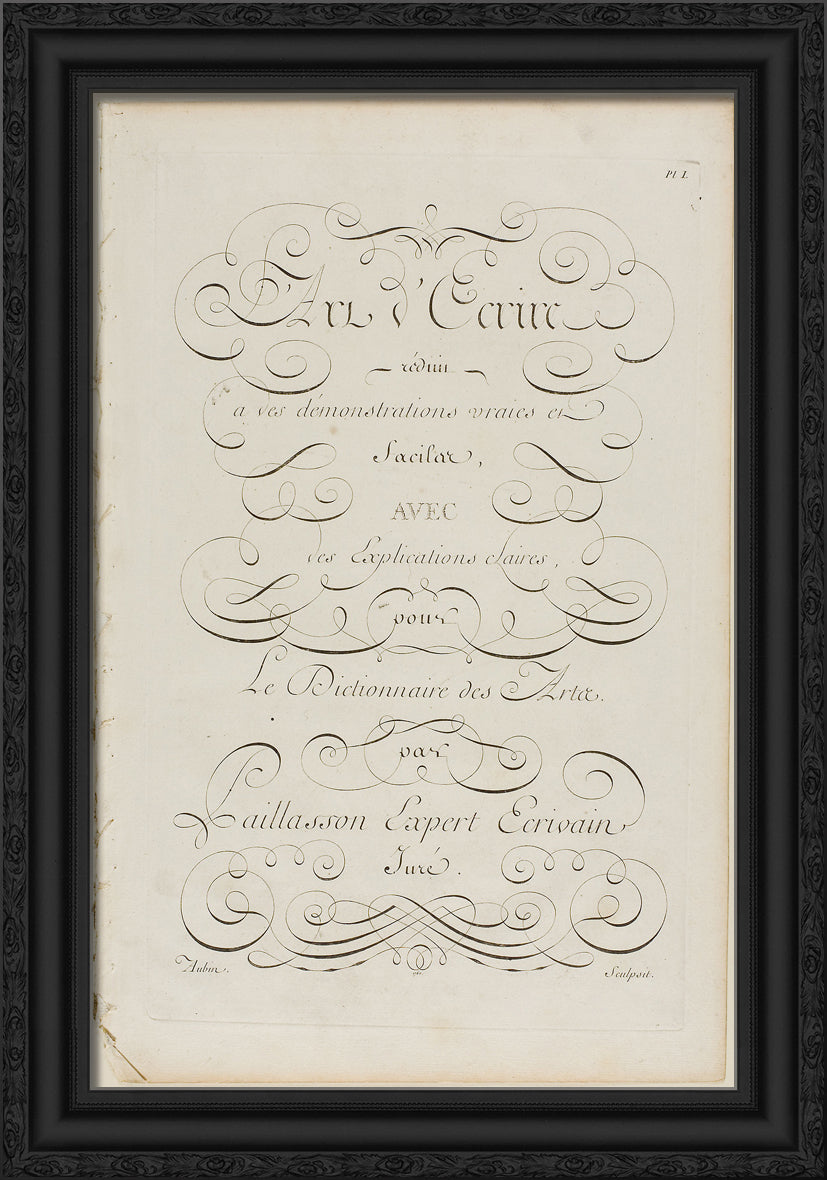 Pl. I.
L'Art d'Ecrire
réduit
a des démonstrations vraies et
faciles,
AVEC
des Explications claires,
pour
Le Dictionnaire des Arts.
par
Paillasson Expert Ecrivain
Juré.
Aubin. Sculpsit.